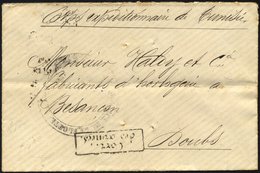 Corps expéditionnaire de Tunisie
Monsieur Haldy et Cie
fabricants d'horlogerie à
Besançon
Doubs
Corr.
des armées